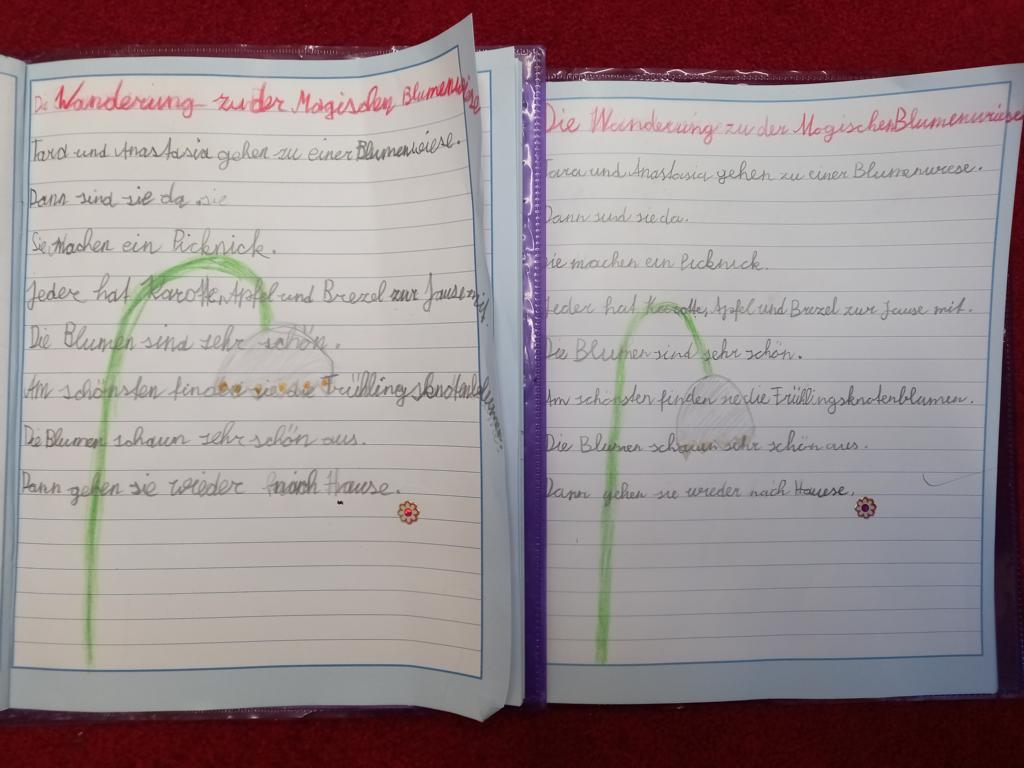 Die Wanderung zu der Magischen Blumenwiese
Tara und Anastasia gehen zu einer Blumenwiese.
Dann sind sie da. sie
Sie machen ein Picknick.
Jeder hat Karotte, Apfel und Brezel zur Jause mit.
Die Blumen sind sehr schön.
Am schönsten finden sie die Frühlingsknotenblumen.
Die Blumen schaun sehr schön aus.
Dann gehen sie wieder nach Hause.
Die Wanderung zu der Magischen Blumenwiese
Tara und Anastasia gehen zu einer Blumenwiese.
Dann sind sie da.
Sie machen ein Picknick.
Jeder hat Karotte, Apfel und Brezel zur Jause mit.
Die Blumen sind sehr schön.
Am schönsten finden sie die Frühlingsknotenblumen.
Die Blumen schaun sehr schön aus.
Dann gehen sie wieder nach Hauese.